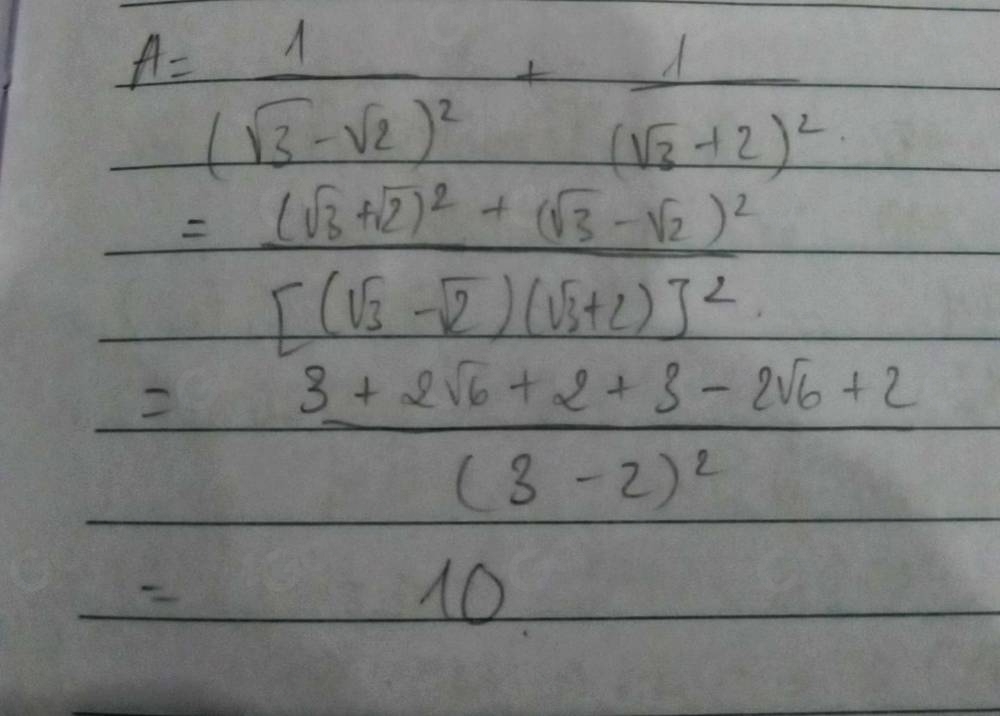 A = 1/(√3 - √2)² + 1/(√3 + 2)².
= ((√3 + √2)² + (√3 - √2)²)/[(√3 - √2)(√3 + 2)]².
= (3 + 2√6 + 2 + 3 - 2√6 + 2)/(3 - 2)²
= 10.